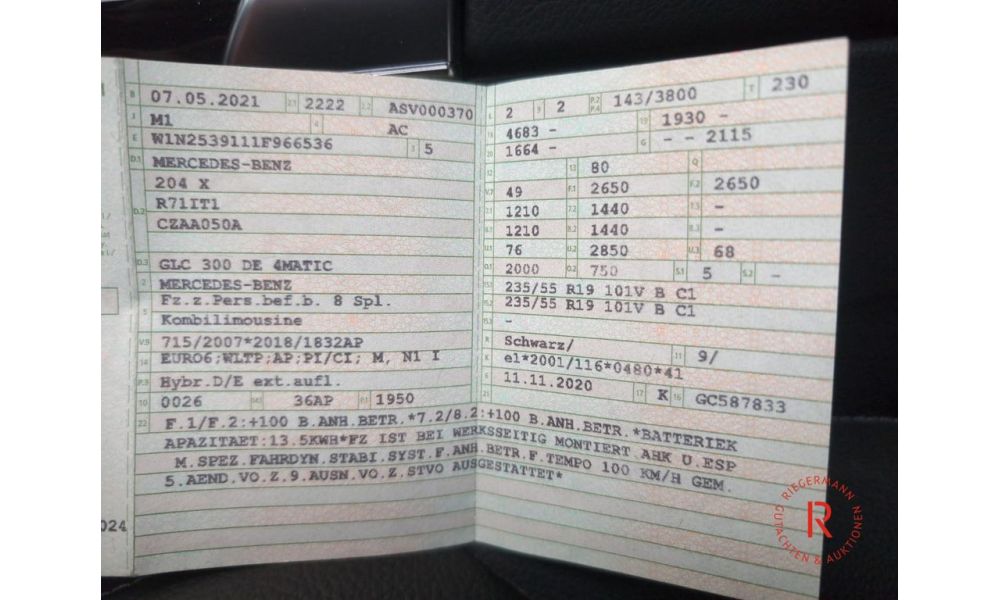 B 07.05.2021 2.1 2222 2.2 ASV000370
J M1 4 AC
E W1N2539111F966536 3 5
D.1 MERCEDES-BENZ
204 X
D.2 R71IT1
CZAA050A
D.3 GLC 300 DE 4MATIC
2 MERCEDES-BENZ
5 Fz.z.Pers.bef.b. 8 Spl.
Kombilimousine
V.9 715/2007*2018/1832AP
14 EURO6;WLTP;AP;PI/CI; M, N1 I
P.3 Hybr.D/E ext.aufl.
10 0026 14.1 36AP P.1 1950
L 2 9 2 P.2 P.4 143/3800 T 230
18 4683 - 19 1930 -
20 1664 - G - - 2115
12 13 80 Q
V.7 49 F.1 2650 F.2 2650
7.1 1210 7.2 1440 7.3 -
8.1 1210 8.2 1440 8.3 -
U.1 76 U.2 2850 U.3 68
O.1 2000 O.2 750 S.1 5 S.2 -
15.1 235/55 R19 101V B C1
15.2 235/55 R19 101V B C1
15.3 -
R Schwarz/ 11 9/
K e1*2001/116*0480*41
6 11.11.2020 17 K 16 GC587833
21
22 F.1/F.2:+100 B.ANH.BETR.*7.2/8.2:+100 B.ANH.BETR.*BATTERIEK
APAZITAET:13.5KWH*FZ IST BEI WERKSSEITIG MONTIERT.AHK U.ESP
M.SPEZ.FAHRDYN.STABI.SYST.F.ANH.BETR.F.TEMPO 100 KM/H GEM.
5.AEND.VO.Z.9.AUSN.VO.Z.STVO AUSGESTATTET*
024
RIEGERMANN
R
GUTACHTEN & AUKTIONEN